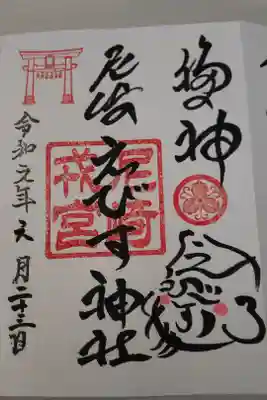 福の神
尼崎えびす神社
尼崎
戎宮
令和元年六月二十三日